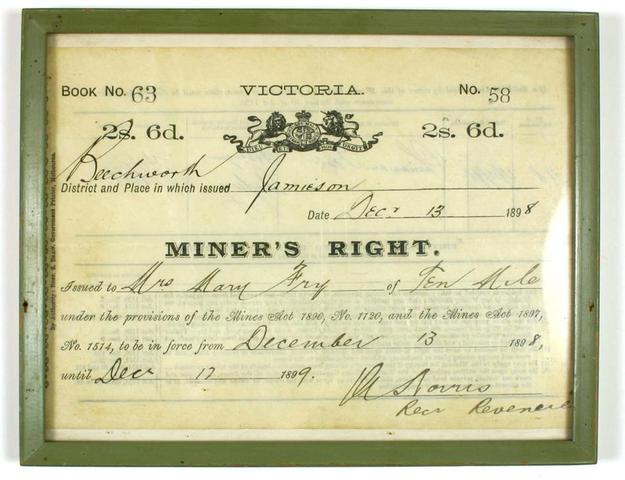 Book No. 63 VICTORIA. No. 58
2s. 6d. 2s. 6d.
DIEU ET MON DROIT
Beechworth Jamieson
District and Place in which issued
Date Decr 13 1898
MINER'S RIGHT.
Issued to Mrs Mary Fry of Ten Mile
under the provisions of the Mines Act 1890, No. 1120, and the Mines Act 1897,
No. 1514, to be in force from December 13 1898,
until Decr 12 1899.
Norris
Recr Revenue